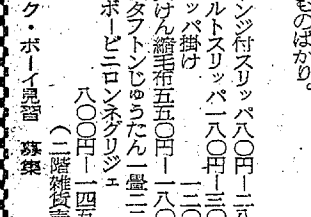 ものばかり。
ンジ付スリッパ八〇〇円ー二八
ルトスリッパ一八〇円ー三〇
ッパ掛け
一二〇
けん縮毛布五五〇円ー一八〇
タフトンじゅうたん一畳二二
ボービニロンネグリジェ
八〇〇円ー一四五
(二階雑貨売
ク・ボーイ見習 募集